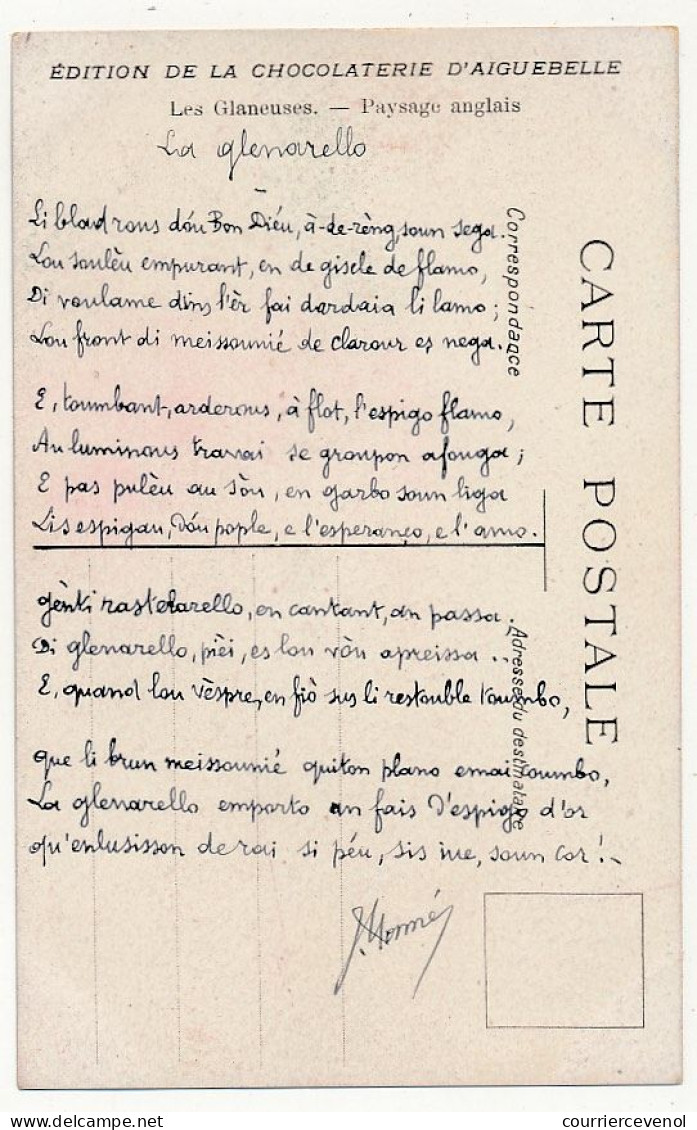 ÉDITION DE LA CHOCOLATERIE D'AIGUEBELLE
Les Glaneuses. — Paysage anglais
La glenarello
Li blad rous dóu Bon Diéu, à-de-rèng, soun sega.
Lou soulèu empurant, en de giscle de flamo,
Di voulame dins l'èr fai dardaia li lamo;
Lou front di meissounié de clarour es nega.
E, toumbant, arderous, à flot, l'espigo flamo,
Au luminous travai se groupon afouga;
E pas pulèu au sòu, en garbo soun liga
Lis espigau, dóu pople, e l'esperanço, e l'amo.
gènti rastelarello, en cantant, an passa.
Di glenarello, pièi, es lou vòu apreissa..
E, quand lou vèspre, en fiò sus li restouble toumbo,
que li brun meissounié quiton plano emai coumbo,
La glenarello emporto un fais d'espigo d'or
qu'enlusisson de rai si péu, sis iue, soun cor!
Correspondance
Adresse du destinataire
CARTE POSTALE
courriercevenol.com